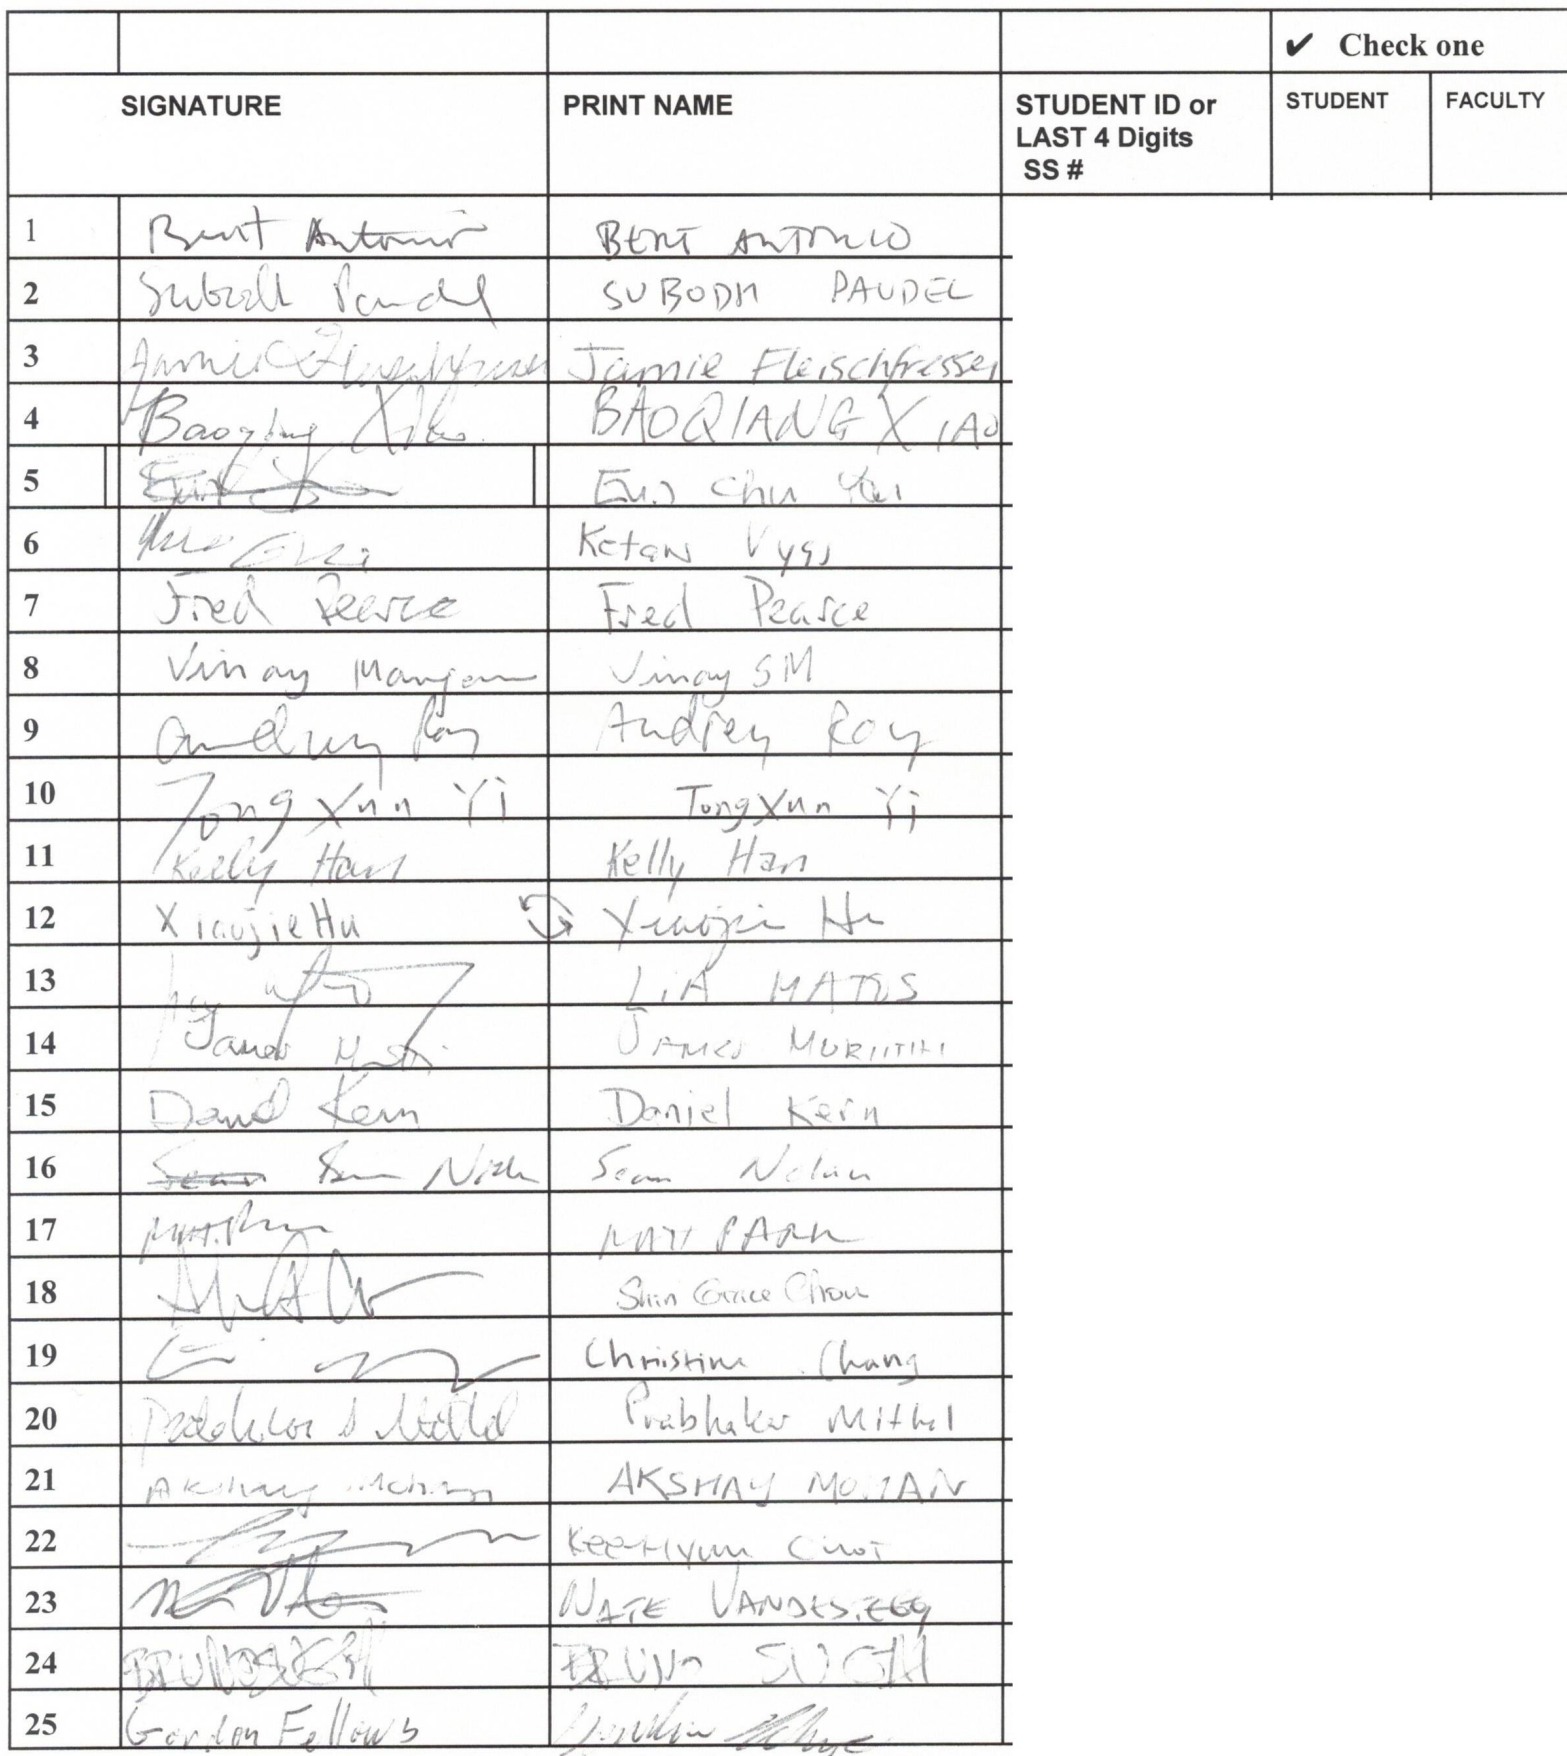 ✔ Check one
SIGNATURE PRINT NAME STUDENT ID or LAST 4 Digits SS # STUDENT FACULTY
1 Bert Antonio BERT ANTONIO
2 Subodh Paudel SUBODH PAUDEL
3 Jamie Fleischfresser Jamie Fleischfresser
4 Baoqiang Xiao BAOQIANG XIAO
5 Eun Chu
6 Ketan Vyas
7 Fred Pearce Fred Pearce
8 Vinay Vinay SM
9 Audrey Roy Audrey Roy
10 Tong Xun Yi TongXun Yi
11 Kelly Han Kelly Han
12 Xiaojie Hu Xiaojie Hu
13 LIA MATOS
14 James JAMES MURIITHI
15 Daniel Kern Daniel Kern
16 Sean Nolan Sean Nolan
17 MATT PARK
18 Shin Grace Chou
19 Christine Chang
20 Prabhakar Mithal
21 Akshay Mohan AKSHAY MOHAN
22 Kee-Hyun CHOI
23 NATE
24 BRUNO BRUNO
25 Gordon Fellows